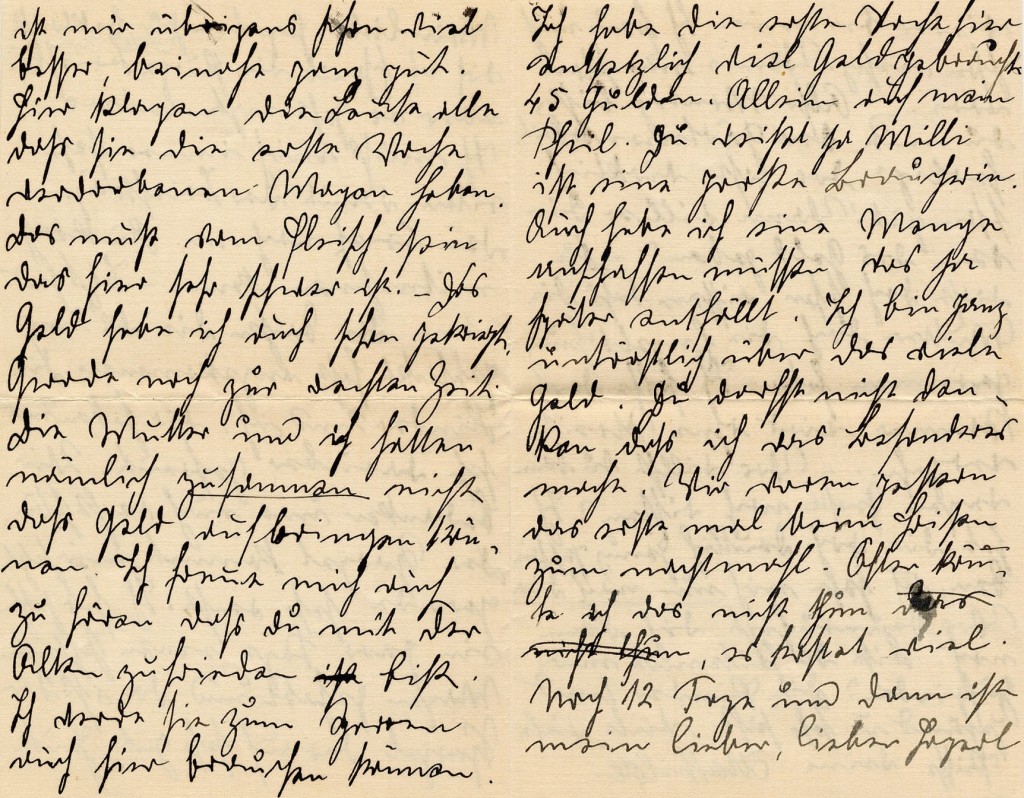 ist mir übrigens schon viel
besser, beinahe ganz gut.
Hier klagen die Leute alle
dass sie die erste Woche
verdorbenen Magen haben.
Das muß vom Fleisch sein
das hier sehr schwer ist. – Das
Geld habe ich auch schon gekriegt,
Gerade noch zur rechten Zeit.
Die Mutter und ich hätten
nämlich zusammen nicht
dass Geld aufbringen kön-
nen. Ich freue mich auch
zu hören dass du mit der
Alten zufrieden ist bist.
Ich werde sie zum
auch hier brauchen können.
Ich habe die erste Woche hier
entsetzlich viel Geld gebraucht
45 Gulden. Allein auf mein
Theil. Du weißt ja Willi
ist eine
Auch habe ich eine Menge
anschaffen müssen was ja
später entfällt. Ich bin ganz
untröstlich über das viele
Geld. Du darfst nicht den-
ken dass ich was besonderes
mache. Wir waren gestern
das erste mal beim
zum nachtmahl. Öfter könn-
te ich das nicht thun das
nicht thun, es kostet viel.
Noch 12 Tage und dann ist
mein lieber, lieber